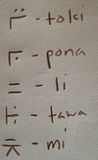 - toki
- pona
- li
- tawa
- mi